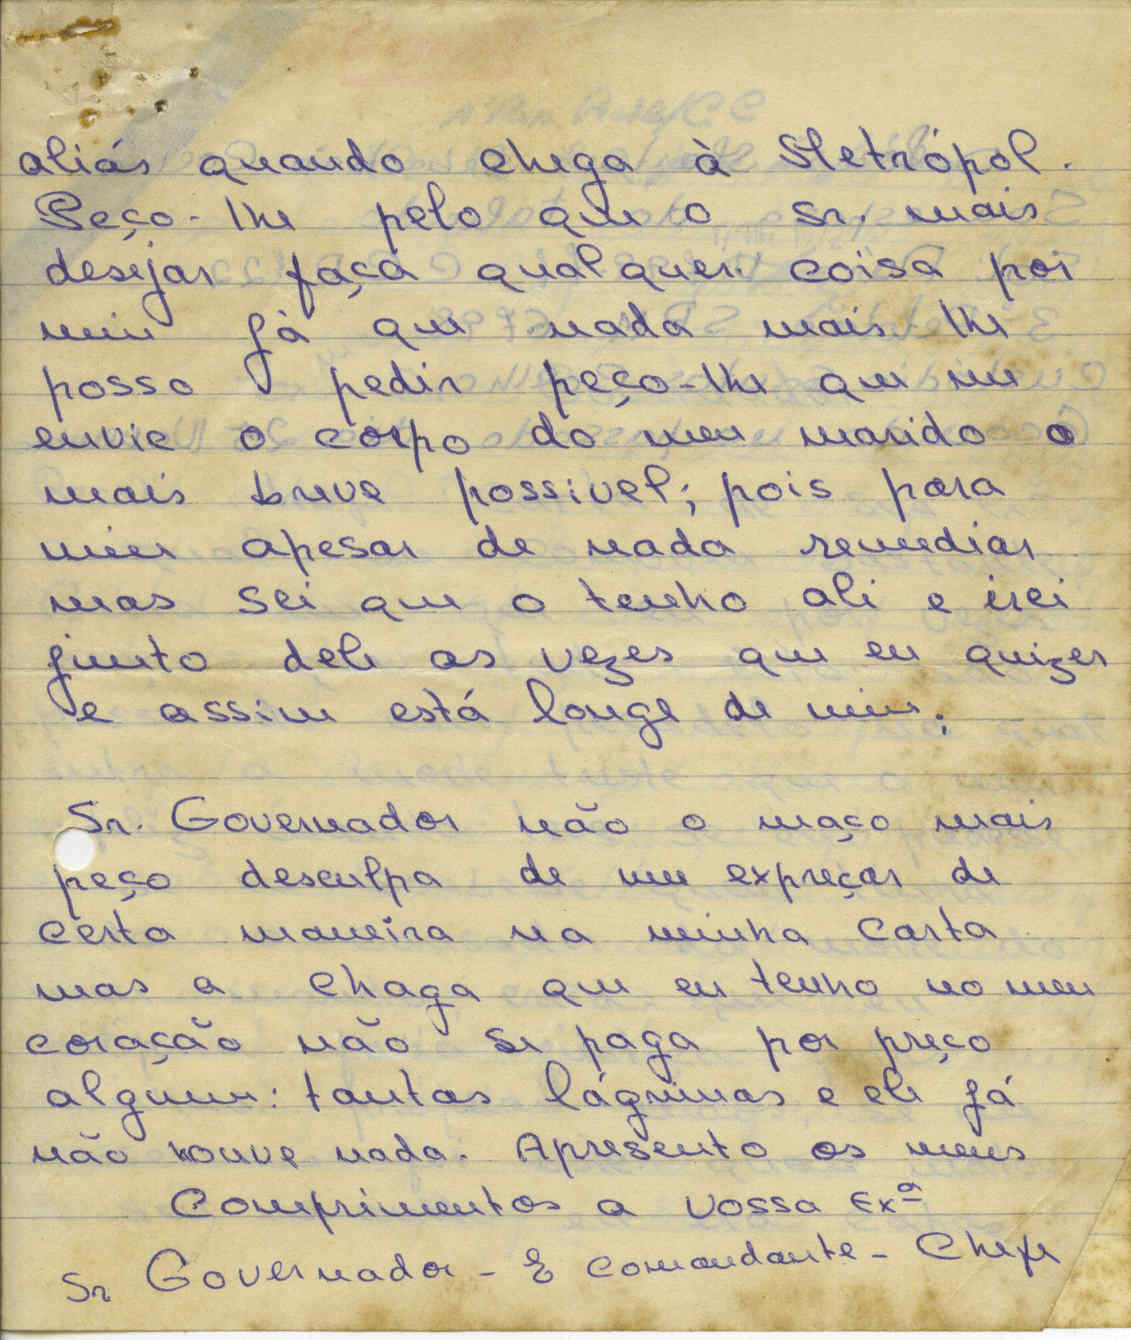 aliás quando chega à Metrópol.
Peço-lhe pelo que o Sr. mais
desejar faça qualquer coisa por
mim já que nada mais lhe
posso pedir peço-lhe que me
envie o corpo do meu marido o
mais breve possivel; pois para
mim apesar de nada remediar
mas sei que o tenho ali e irei
junto dele as vezes que eu quizer
e assim está longe de mim.
Sr. Governador não o maço mais
peço desculpa de me expreçar de
certa maneira na minha carta
mas a chaga que eu tenho no meu
coração não se paga por preço
algum: tantas lágrimas e ele já
não houve nada. Apresento os meus
Comprimentos a Vossa Exª
Sr Governador - E Comandante - Chefe